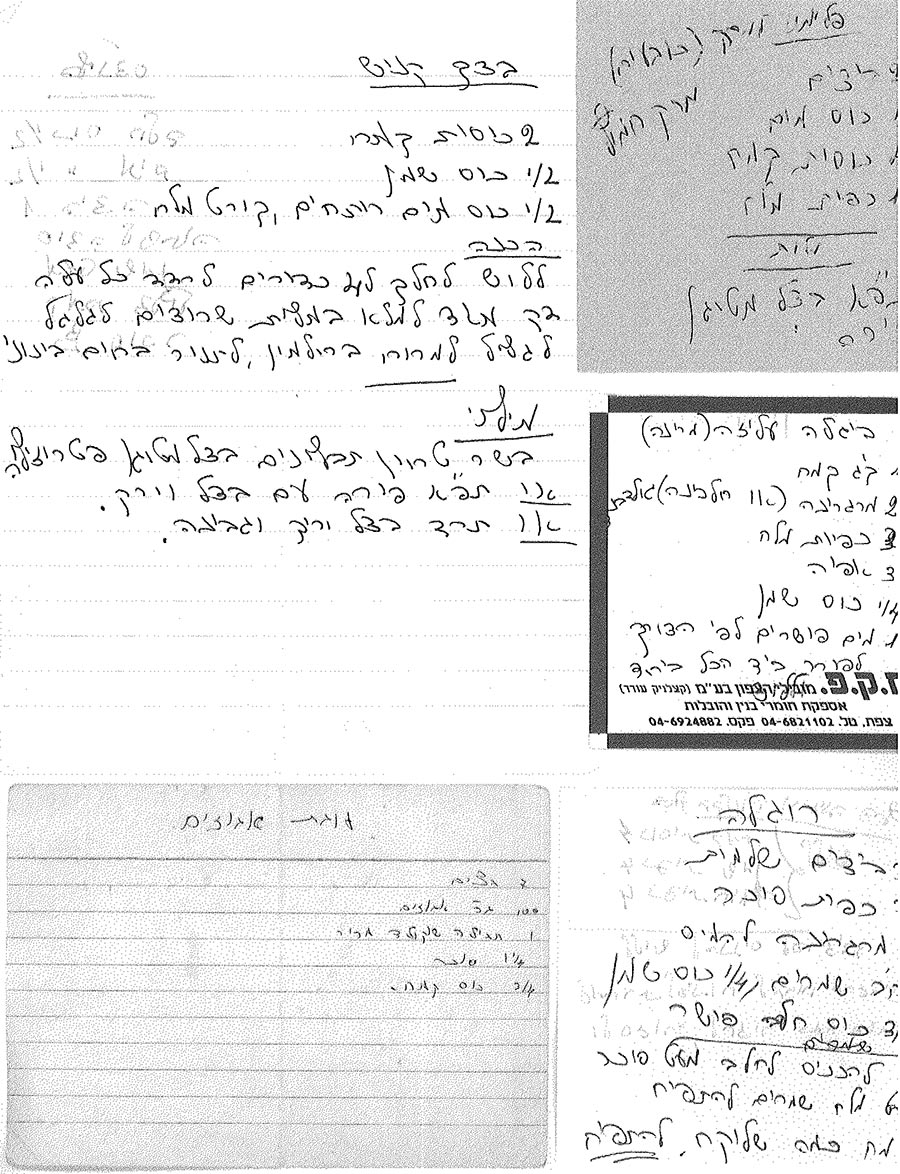 בצק קניש
2 כוסות קמח
1/2 כוס שמן
1/2 כוס מים רותחים, קורט מלח
הכנה
ללוש לחלק ל4 כדורים לרדד כל עלה
דק מאד למלא במלית שרוצים לגלגל
למרוח בחלמון, לתנור בחום בינוני
מילוי
בשר טחון תבלינים בצל מטוגן פטרוזיליה
או תפ"א פירה עם בצל וירק.
או תרד בצל ירק וגבינה.
מרק
ביצים
כוס מים
כוסות קמח
כפית מלח
מלית
תפ"א בצל מטוגן
ביגלה עליזה (מרינה)
קג קמח
2 מרגרינה (או חלבינה)
כפיות מלח
אפיה
1/4 כוס שמן
מים פושרים לפי הצורך
לפורר ביד הכל ביחד
ח.ק.פ. מובילי הצפון בע"מ (קצלניק עודד)
אספקת חומרי בנין והובלות
צפת, טל. 04-6821102 פקס. 04-6924882
עוגת אגוזים
ביצים
גר אגוזים
1 חבילה שוקולד מריר
סוכר
3/4 כוס קמח.
רוגלה
ביצים שלמות
כפית סוכר
מרגרינה להמיס
שמרים, 1/4 כוס שמן
כוס חלב פושר
להכניס לחלב מעט סוכר
מלח שמרים להתפיח
קמח כמה שליקח. להתפיח